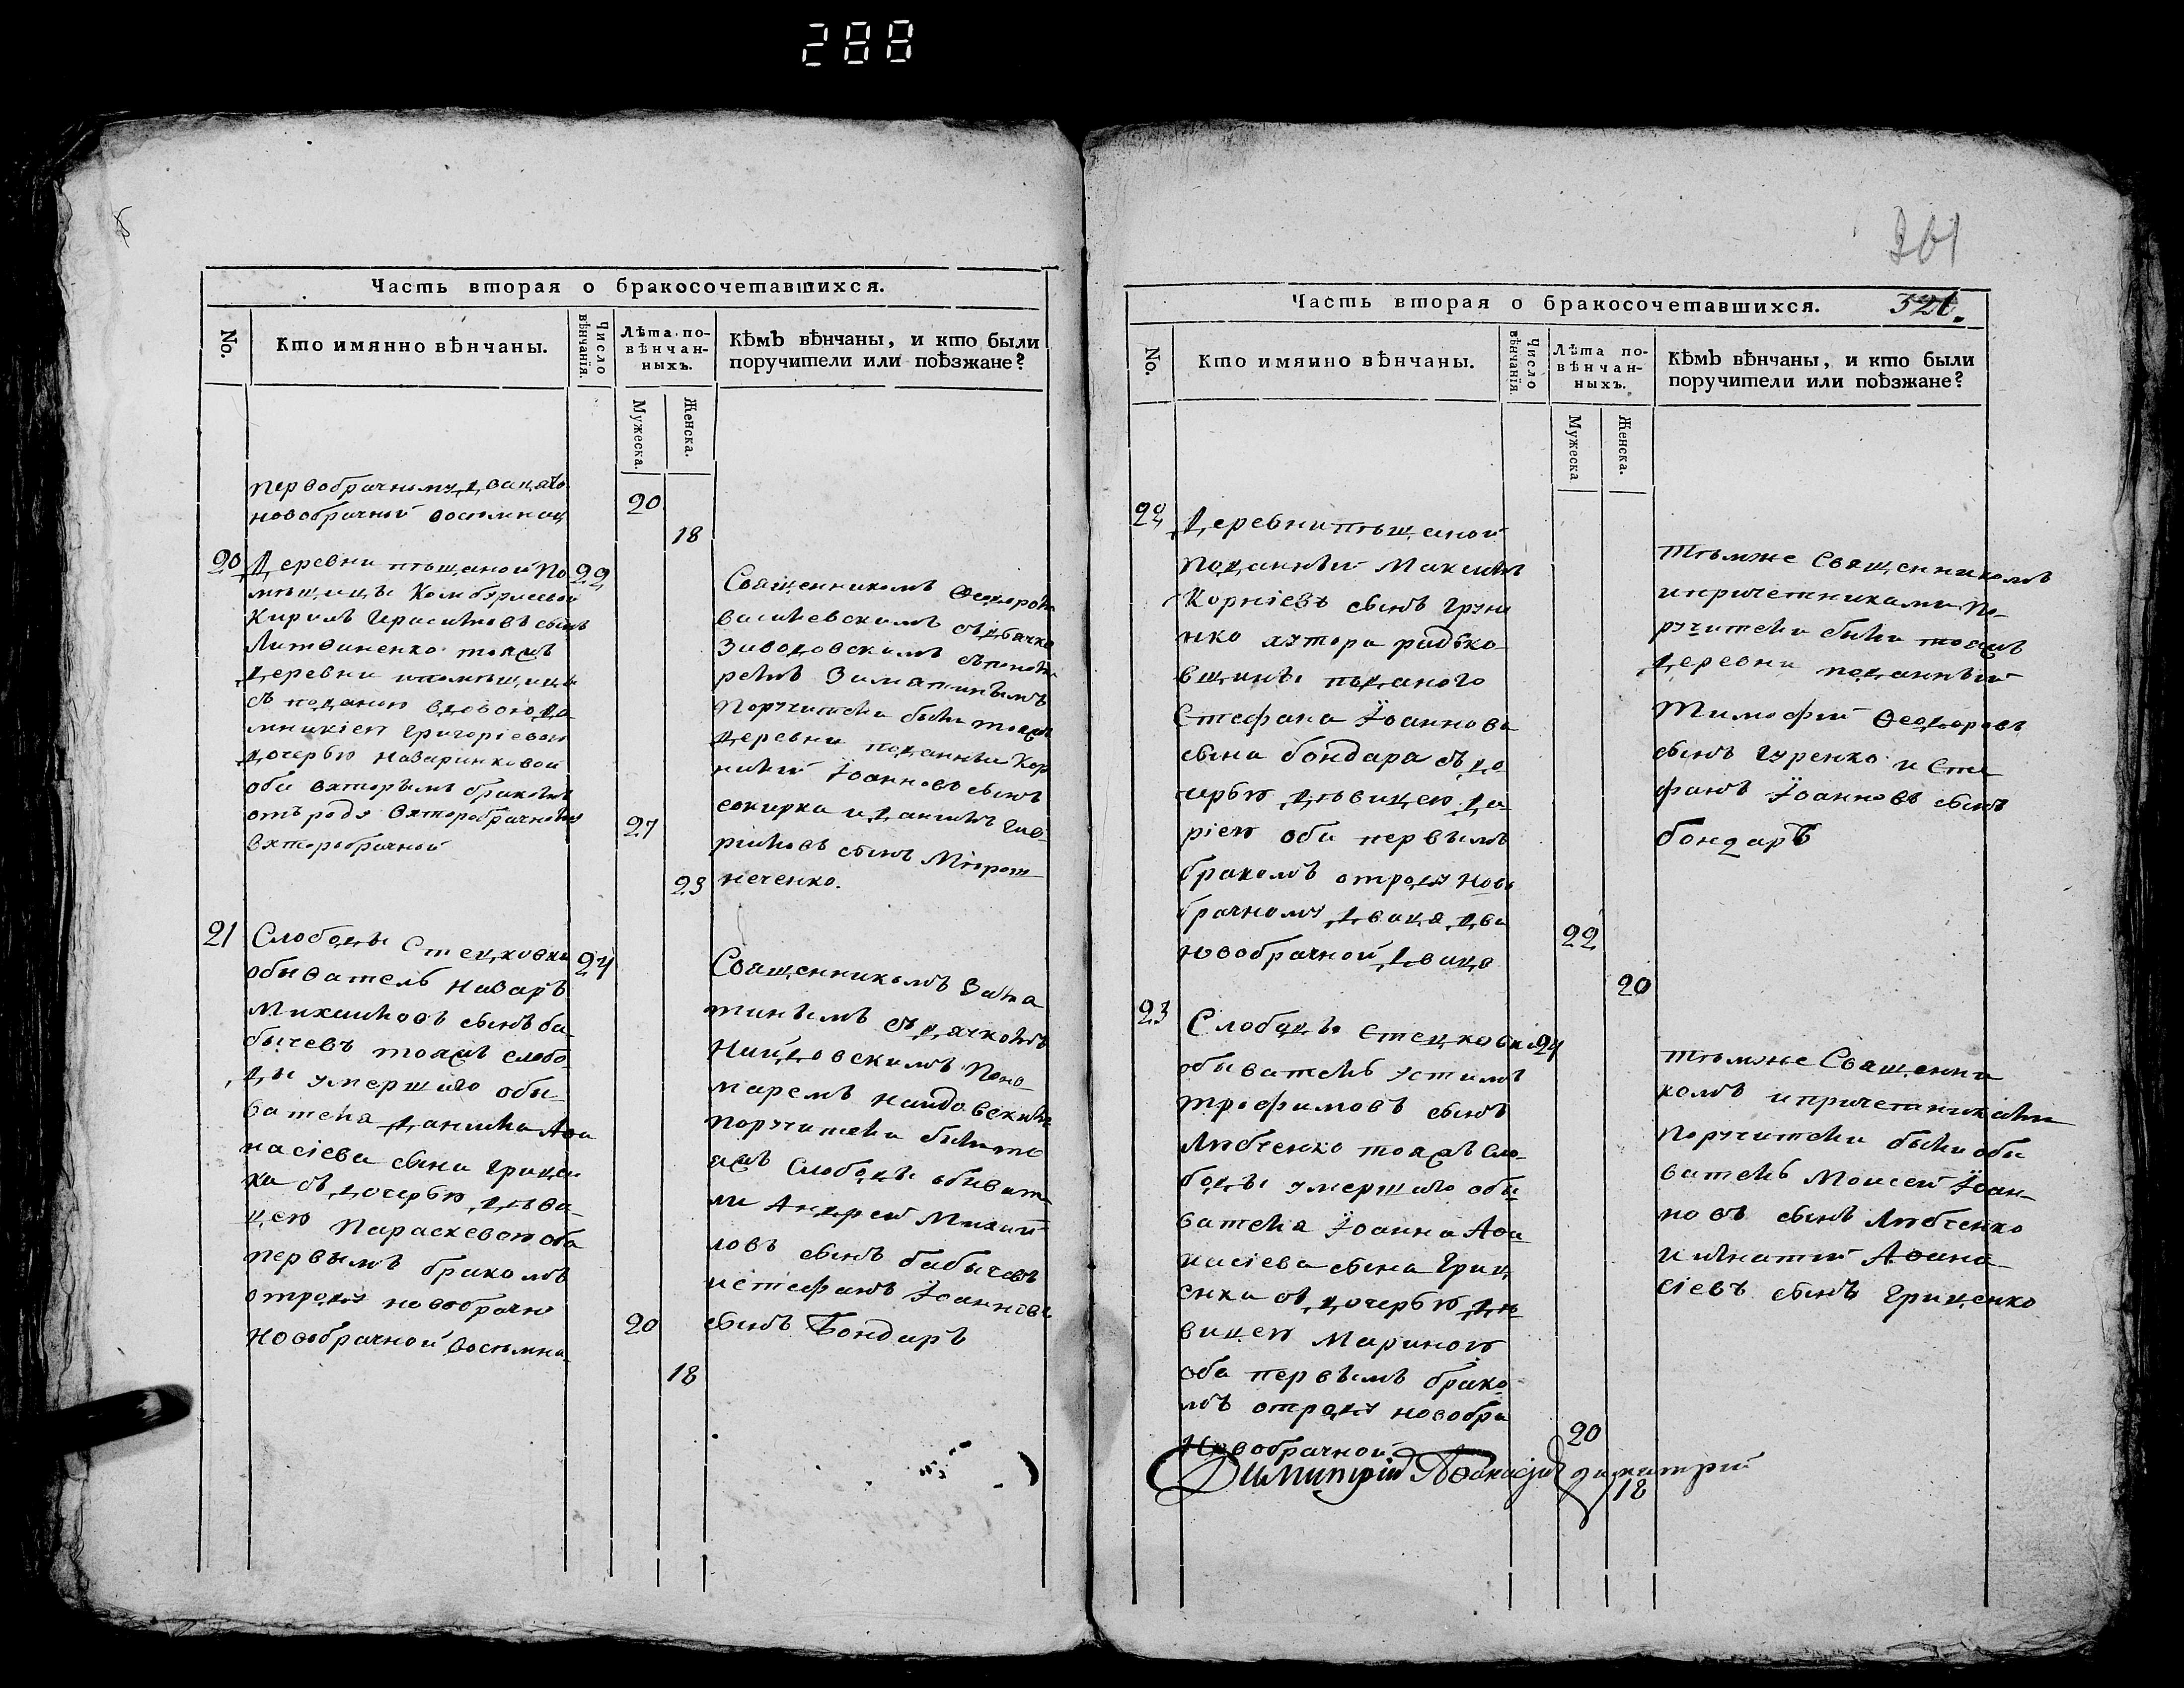 288
Часть вторая о бракосочетавшихся.
No.
Кто имянно вѣнчаны.
Число вѣнчанія.
Лѣта повѣнчанныхъ.
Мужеска.
Женска.
Кѣмъ вѣнчаны, и кто были
поручители или поѣзжане?
первобрачному двацать
20
новобрачной восемнац
18
20
Деревни пѣщаной по
22
мѣщицы
Кирилъ Герасимовъ сынъ
Литвиненко тояжъ
деревни помѣщици
съ поданою вдовою до
мникіею Григоріевою
дочерью Назаринковой
оба вторымъ бракомъ
отъ роду второбрачному
27
второбрачной
23
Священникомъ Феодоромъ
Василевскимъ съ дьячко
Заводовскимъ съ понома
ремъ
Поручители были тояжъ
деревни поданныи Кор
нилий Іоанновъ сынъ
сокирка и Данилъ Гав
риловъ сынъ Мірош
неченко.
21
Слободы Стецковки
24
обыватель Назаръ
Михаиловъ сынъ ба
бычевъ тояжъ слобо
ды умершаго обы
вателя Данила Афа
насіева сына Грицен
ка съ дочерью дѣви
цею Параскевою оба
первымъ бракомъ
отроду новобрачно
20
Новобрачной восемна
18
Священникомъ
съ дячкомъ
Наидовскимъ поно
маремъ Наидовскимъ
поручители были то
яжъ Слободы обывате
ли Андрей Михаи
ловъ сынъ бабычевъ
истефанъ Іоанновъ
сынъ Бондаръ
261
Часть вторая о бракосочетавшихся.
321.
No.
Кто имянно вѣнчаны.
Число вѣнчанія.
Лѣта повѣнчанныхъ.
Мужеска
Женска.
Кѣмъ вѣнчаны, и кто были
поручители или поѣзжане?
22
Деревни пѣщаной
поданный Максимъ
Корніевъ сынъ Груни
нко хутора радко
вщины поданого
Стефана Іоаннова
сына бондара съ до
черью дѣвицею Да
ріею оба первымъ
бракомъ отроду ново
брачному двацадва
22
новобрачной двацо
20
тѣмже Священникомъ
ипричетниками по
ручители были тояжъ
деревни поданный
Тимофій Феодоровъ
сынъ Гуренко и Сте
фанъ Іоанновъ сынъ
бондаръ
23
Слободы Стецковки
24
обыватель Устимъ
Трофимовъ сынъ
Любченко тояжъ сло
боды умершаго обы
вателя Іоанна Афа
насіева сына Гриц
енка съ дочерью дѣ
вицею Мариною
оба первымъ брако
мъ отроду новобра
20
Новобрачной
18
тѣмже Священни
комъ ипричетниками
поручители были обы
ватель Моисей Іоан
новъ сынъ Любченко
и Игнатий Афана
сіевъ сынъ Гриценко
Димитрій